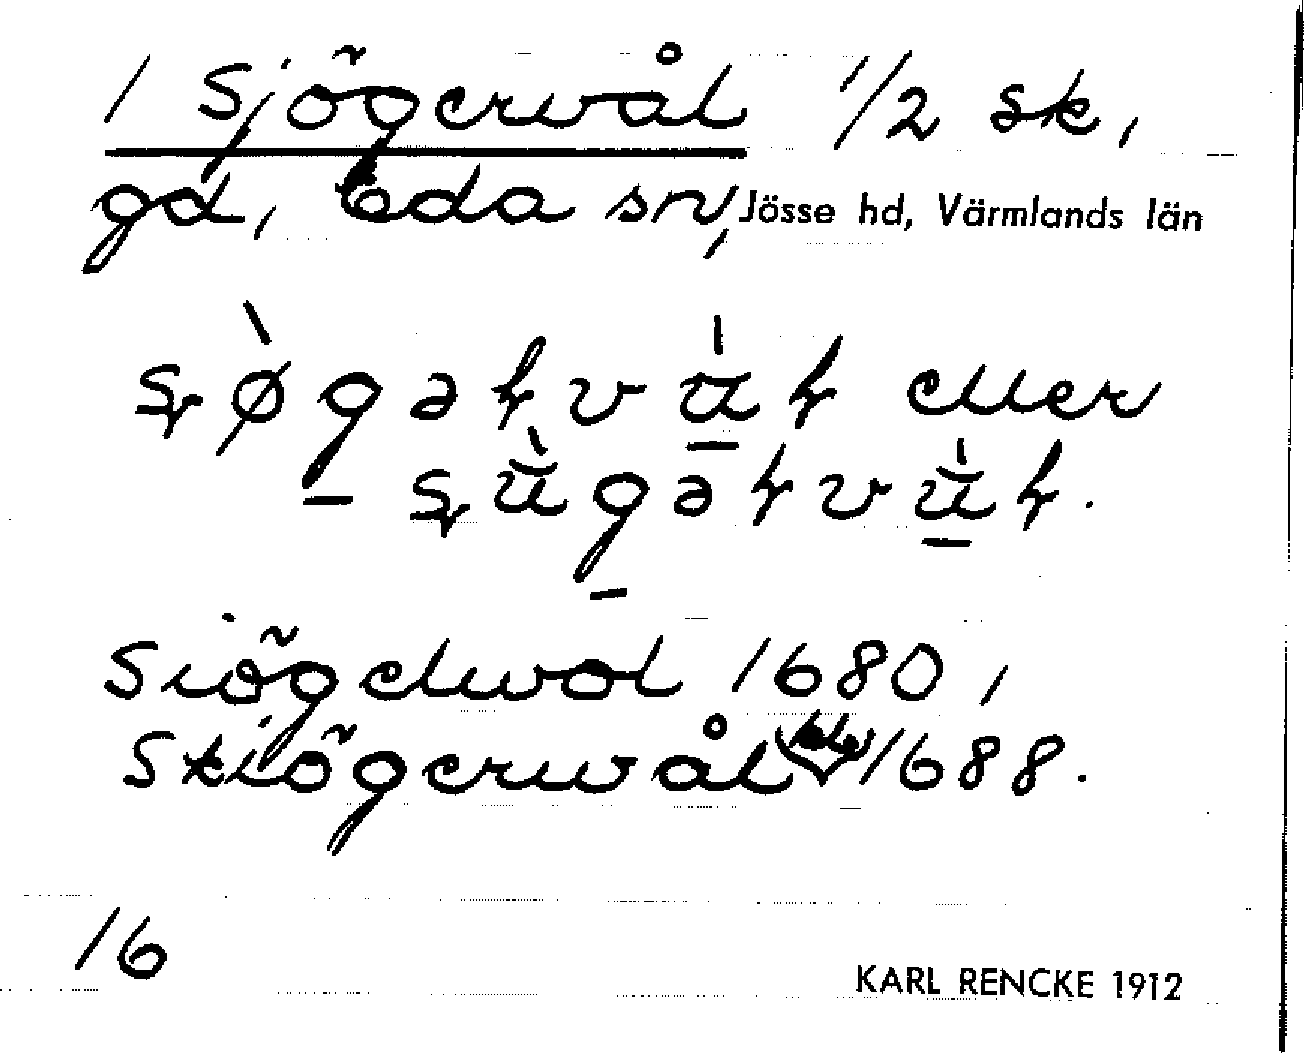 1 Sjögervål 1/2 sk,
gd, Eda sn, Jösse hd, Värmlands län
eller
Siögelwol 1680,
Skiögerwål 1688.
16
KARL RENCKE 1912